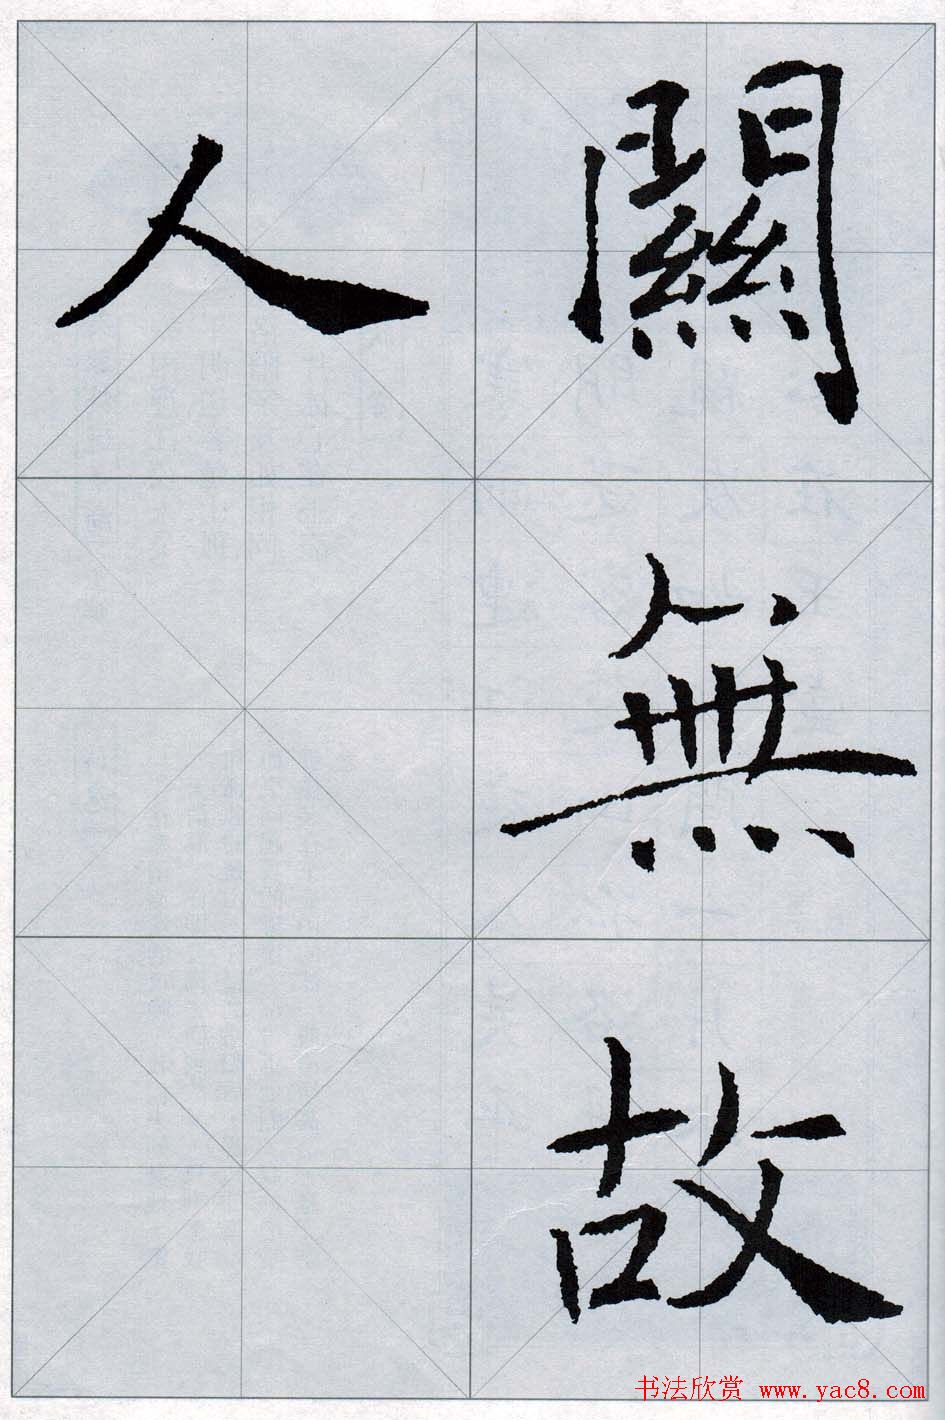 關無故
人
书法欣赏 www.yac8.com